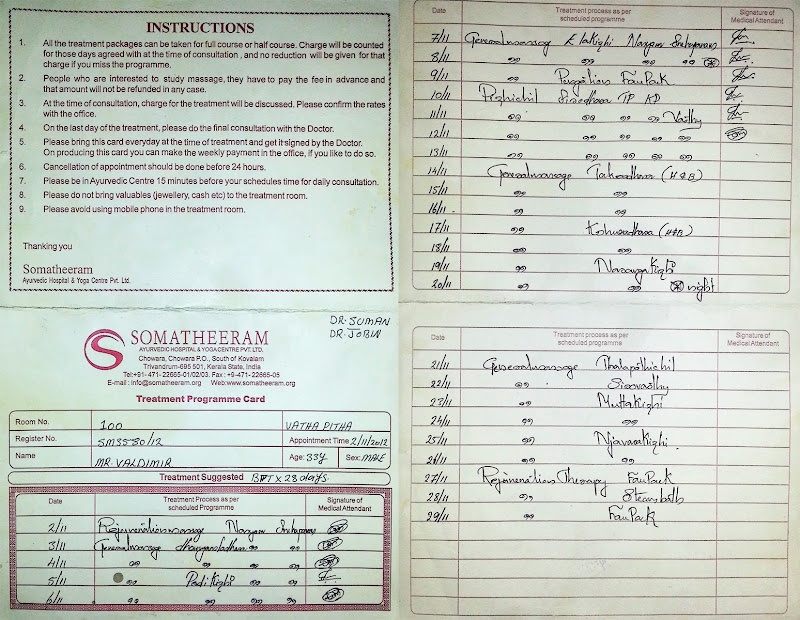 INSTRUCTIONS
1. All the treatment packages can be taken for full course or half course. Charge will be counted
for those days agreed with at the time of consultation , and no reduction will be given for that
charge if you miss the programme.
2. People who are interested to study massage, they have to pay the fee in advance and
that amount will not be refunded in any case.
3. At the time of consultation, charge for the treatment will be discussed. Please confirm the rates
with the office.
4. On the last day of the treatment, please do the final consultation with the Doctor.
5. Please bring this card everyday at the time of treatment and get it signed by the Doctor.
On producing this card you can make the weekly payment in the office, if you like to do so.
6. Cancellation of appointment should be done before 24 hours.
7. Please be in Ayurvedic Centre 15 minutes before your schedules time for daily consultation.
8. Please do not bring valuables (jewellery, cash etc) to the treatment room.
9. Please avoid using mobile phone in the treatment room.
Thanking you
Somatheeram
Ayurvedic Hospital & Yoga Centre Pvt. Ltd.
DR. SUMAN
DR. JOBIN
SOMATHEERAM
AYURVEDIC HOSPITAL & YOGA CENTRE PVT. LTD.
Chowara, Chowara P.O., South of Kovalam
Trivandrum-695 501, Kerala State, India
Tel:+91- 471- 22665-01/02/03. Fax : +9-471- 22665-05
E-mail : info@somatheeram.org Web:www.somatheeram.org
Treatment Programme Card
Room No. 100 VATHA PITHA
Register No. SM3580/12 Appointment Time 2/11/2012
Name MR. VALDIMIR Age: 33y Sex: MALE
Treatment Suggested x 28 days
Date Treatment Process as per scheduled Programme Signature of Medical Attendant
2/11 Rejuvenation massage Nasyam
3/11 General massage
4/11
5/11 Podi Kizhi
6/11
Date Treatment process as per scheduled programme Signature of Medical Attendant
7/11 General massage Elakizhi Nasyam
8/11
9/11 Purgation FacePack
10/11 Pizhichil Sirodhara
11/11 Vasthy
12/11
13/11
14/11 General massage Takradhara (H&B)
15/11
16/11
17/11 Ksheeradhara (H&B)
18/11
19/11 Navara Kizhi
20/11 night
Date Treatment process as per scheduled programme Signature of Medical Attendant
21/11 General massage Thalapothichil
22/11 Sirovasthy
23/11 Mutta Kizhi
24/11
25/11 Njavara Kizhi
26/11
27/11 Rejuvenation Therapy FacePack
28/11 Steambath
29/11 FacePack